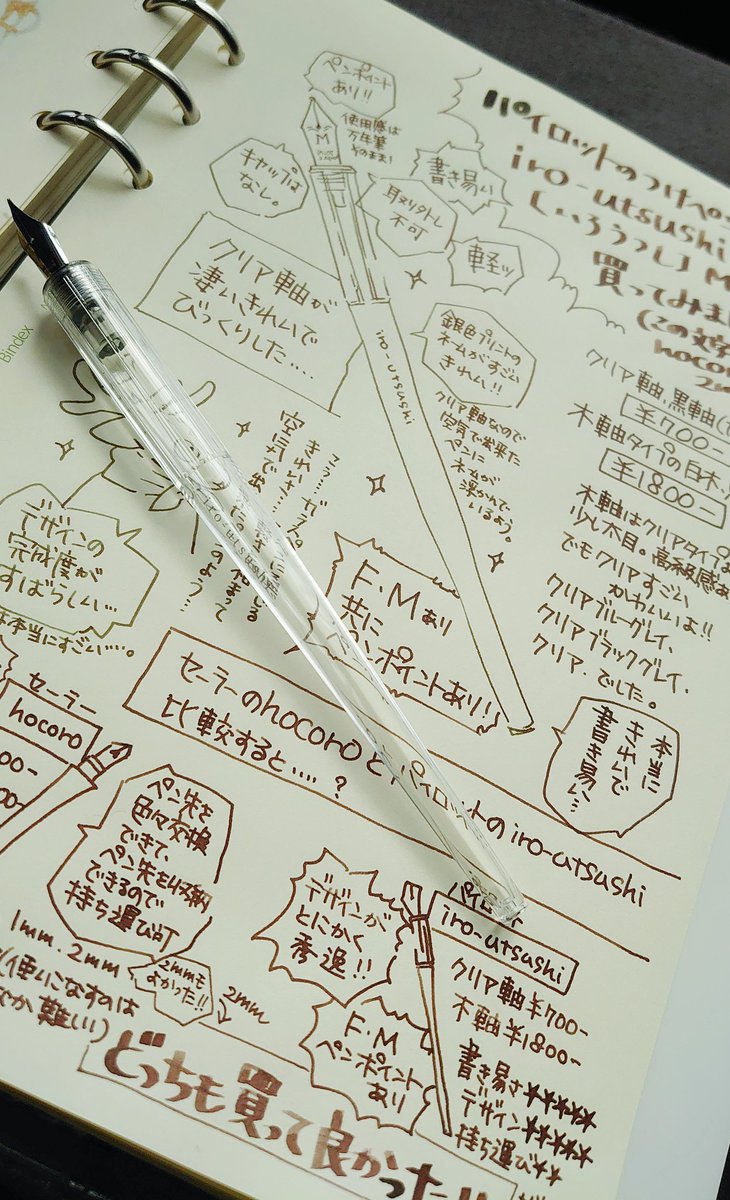 パイロットのつけペン
iro-utsushi
[いろうつし] M
買ってみまし
(この文字
hocoro
2m
ペンポイント
あり!!
使用感は
万年筆
そのまま!
M
キャップは
なし。
書き易い
取りハズし
不可
軽ッ
クリア軸が
凄いきれいで
びっくりした‥‥
iro-utsushi
銀色プリントの
ネームがすごい
きれい!!
クリア軸なので
空気で出来た
ペンに
ネームが
浮かんで
いるよう。
クリア軸、黒軸
¥700-
木軸タイプの
¥1800-
木軸はクリアタイプよ
少し太目。高級感あ
でもクリアすごい
かわいいよ!!
クリアブルーグレイ、
クリアブラックグレイ、
クリア. でした。
Bindex
きれい…
空気で出
デザインの
完成度が
すばらしい…
本当にすごい…。
F.Mあり
共に
ペンポイントあり!
本当に
きれいで
書き易い…
セーラーのhocoroとパイロットのiro-utsushi
比較すると‥‥?
セーラー
hocoro
ペン先を
色々交換
できて、
ペン先を収納
できるので
持ち運び可
1mm.2mm
(使いこなすのは
なか難しい)
2mmも
よかった!!
2mm
デザインが
とにかく
秀逸!!
F.M
ペンポイント
あり
iro-utsushi
クリア軸¥700-
木軸¥1800-
書き易さ★★★★★
デザイン★★★★★
持ち運び★★
どっちも買って良かった!!